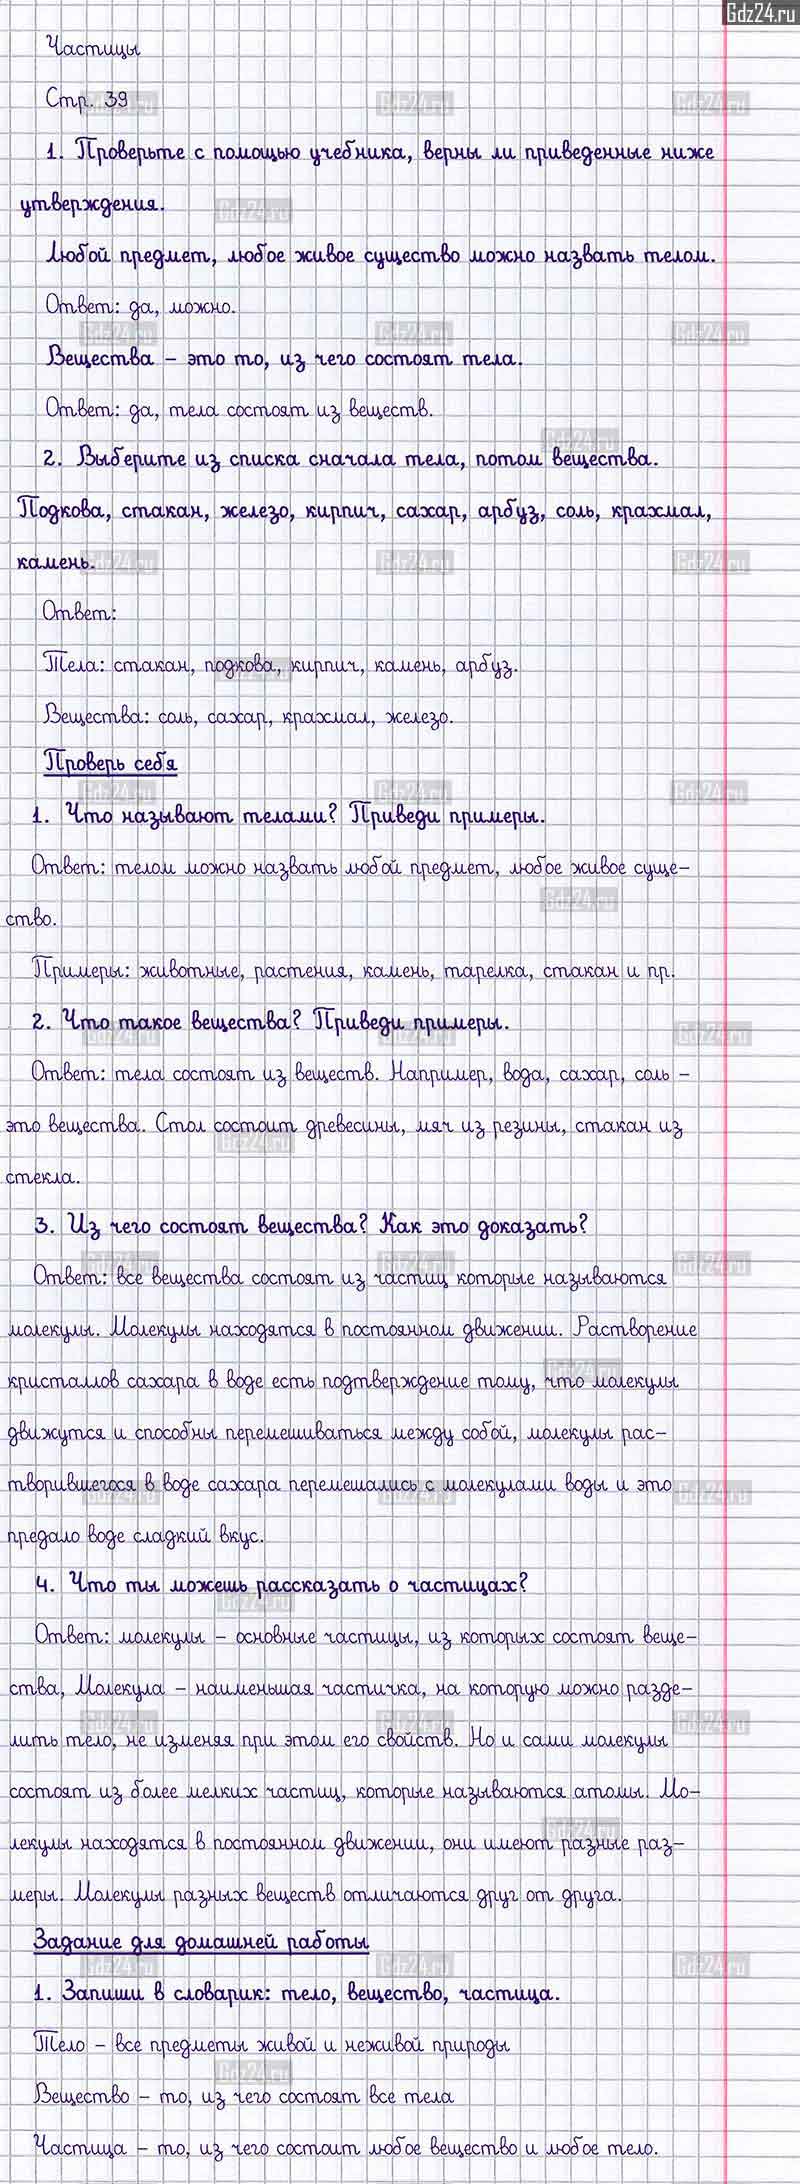 Gdz24.ru
Частицы
Стр. 39
1. Проверьте с помощью учебника, верны ли приведенные ниже
утверждения.
Любой предмет, любое живое существо можно назвать телом.
Ответ: да, можно.
Вещества – это то, из чего состоят тела.
Ответ: да, тела состоят из веществ.
2. Выберите из списка сначала тела, потом вещества.
Подкова, стакан, железо, кирпич, сахар, арбуз, соль, крахмал,
камень.
Ответ:
Тела: стакан, подкова, кирпич, камень, арбуз.
Вещества: соль, сахар, крахмал, железо.
Проверь себя
1. Что называют телами? Приведи примеры.
Ответ: телом можно назвать любой предмет, любое живое суще-
ство.
Примеры: животные, растения, камень, тарелка, стакан и пр.
2. Что такое вещества? Приведи примеры.
Ответ: тела состоят из веществ. Например, вода, сахар, соль –
это вещества. Стол состоит древесины, мяч из резины, стакан из
стекла.
3. Из чего состоят вещества? Как это доказать?
Ответ: все вещества состоят из частиц которые называются
молекулы. Молекулы находятся в постоянном движении. Растворение
кристаллов сахара в воде есть подтверждение тому, что молекулы
движутся и способны перемешиваться между собой, молекулы рас-
творившегося в воде сахара перемешались с молекулами воды и это
предало воде сладкий вкус.
4. Что ты можешь рассказать о частицах?
Ответ: молекулы – основные частицы, из которых состоят веще-
ства, Молекула – наименьшая частичка, на которую можно разде-
лить тело, не изменяя при этом его свойств. Но и сами молекулы
состоят из более мелких частиц, которые называются атомы. Мо-
лекулы находятся в постоянном движении, они имеют разные раз-
меры. Молекулы разных веществ отличаются друг от друга.
Задание для домашней работы
1. Запиши в словарик: тело, вещество, частица.
Тело – все предметы живой и неживой природы
Вещество – то, из чего состоят все тела
Частица – то, из чего состоит любое вещество и любое тело.